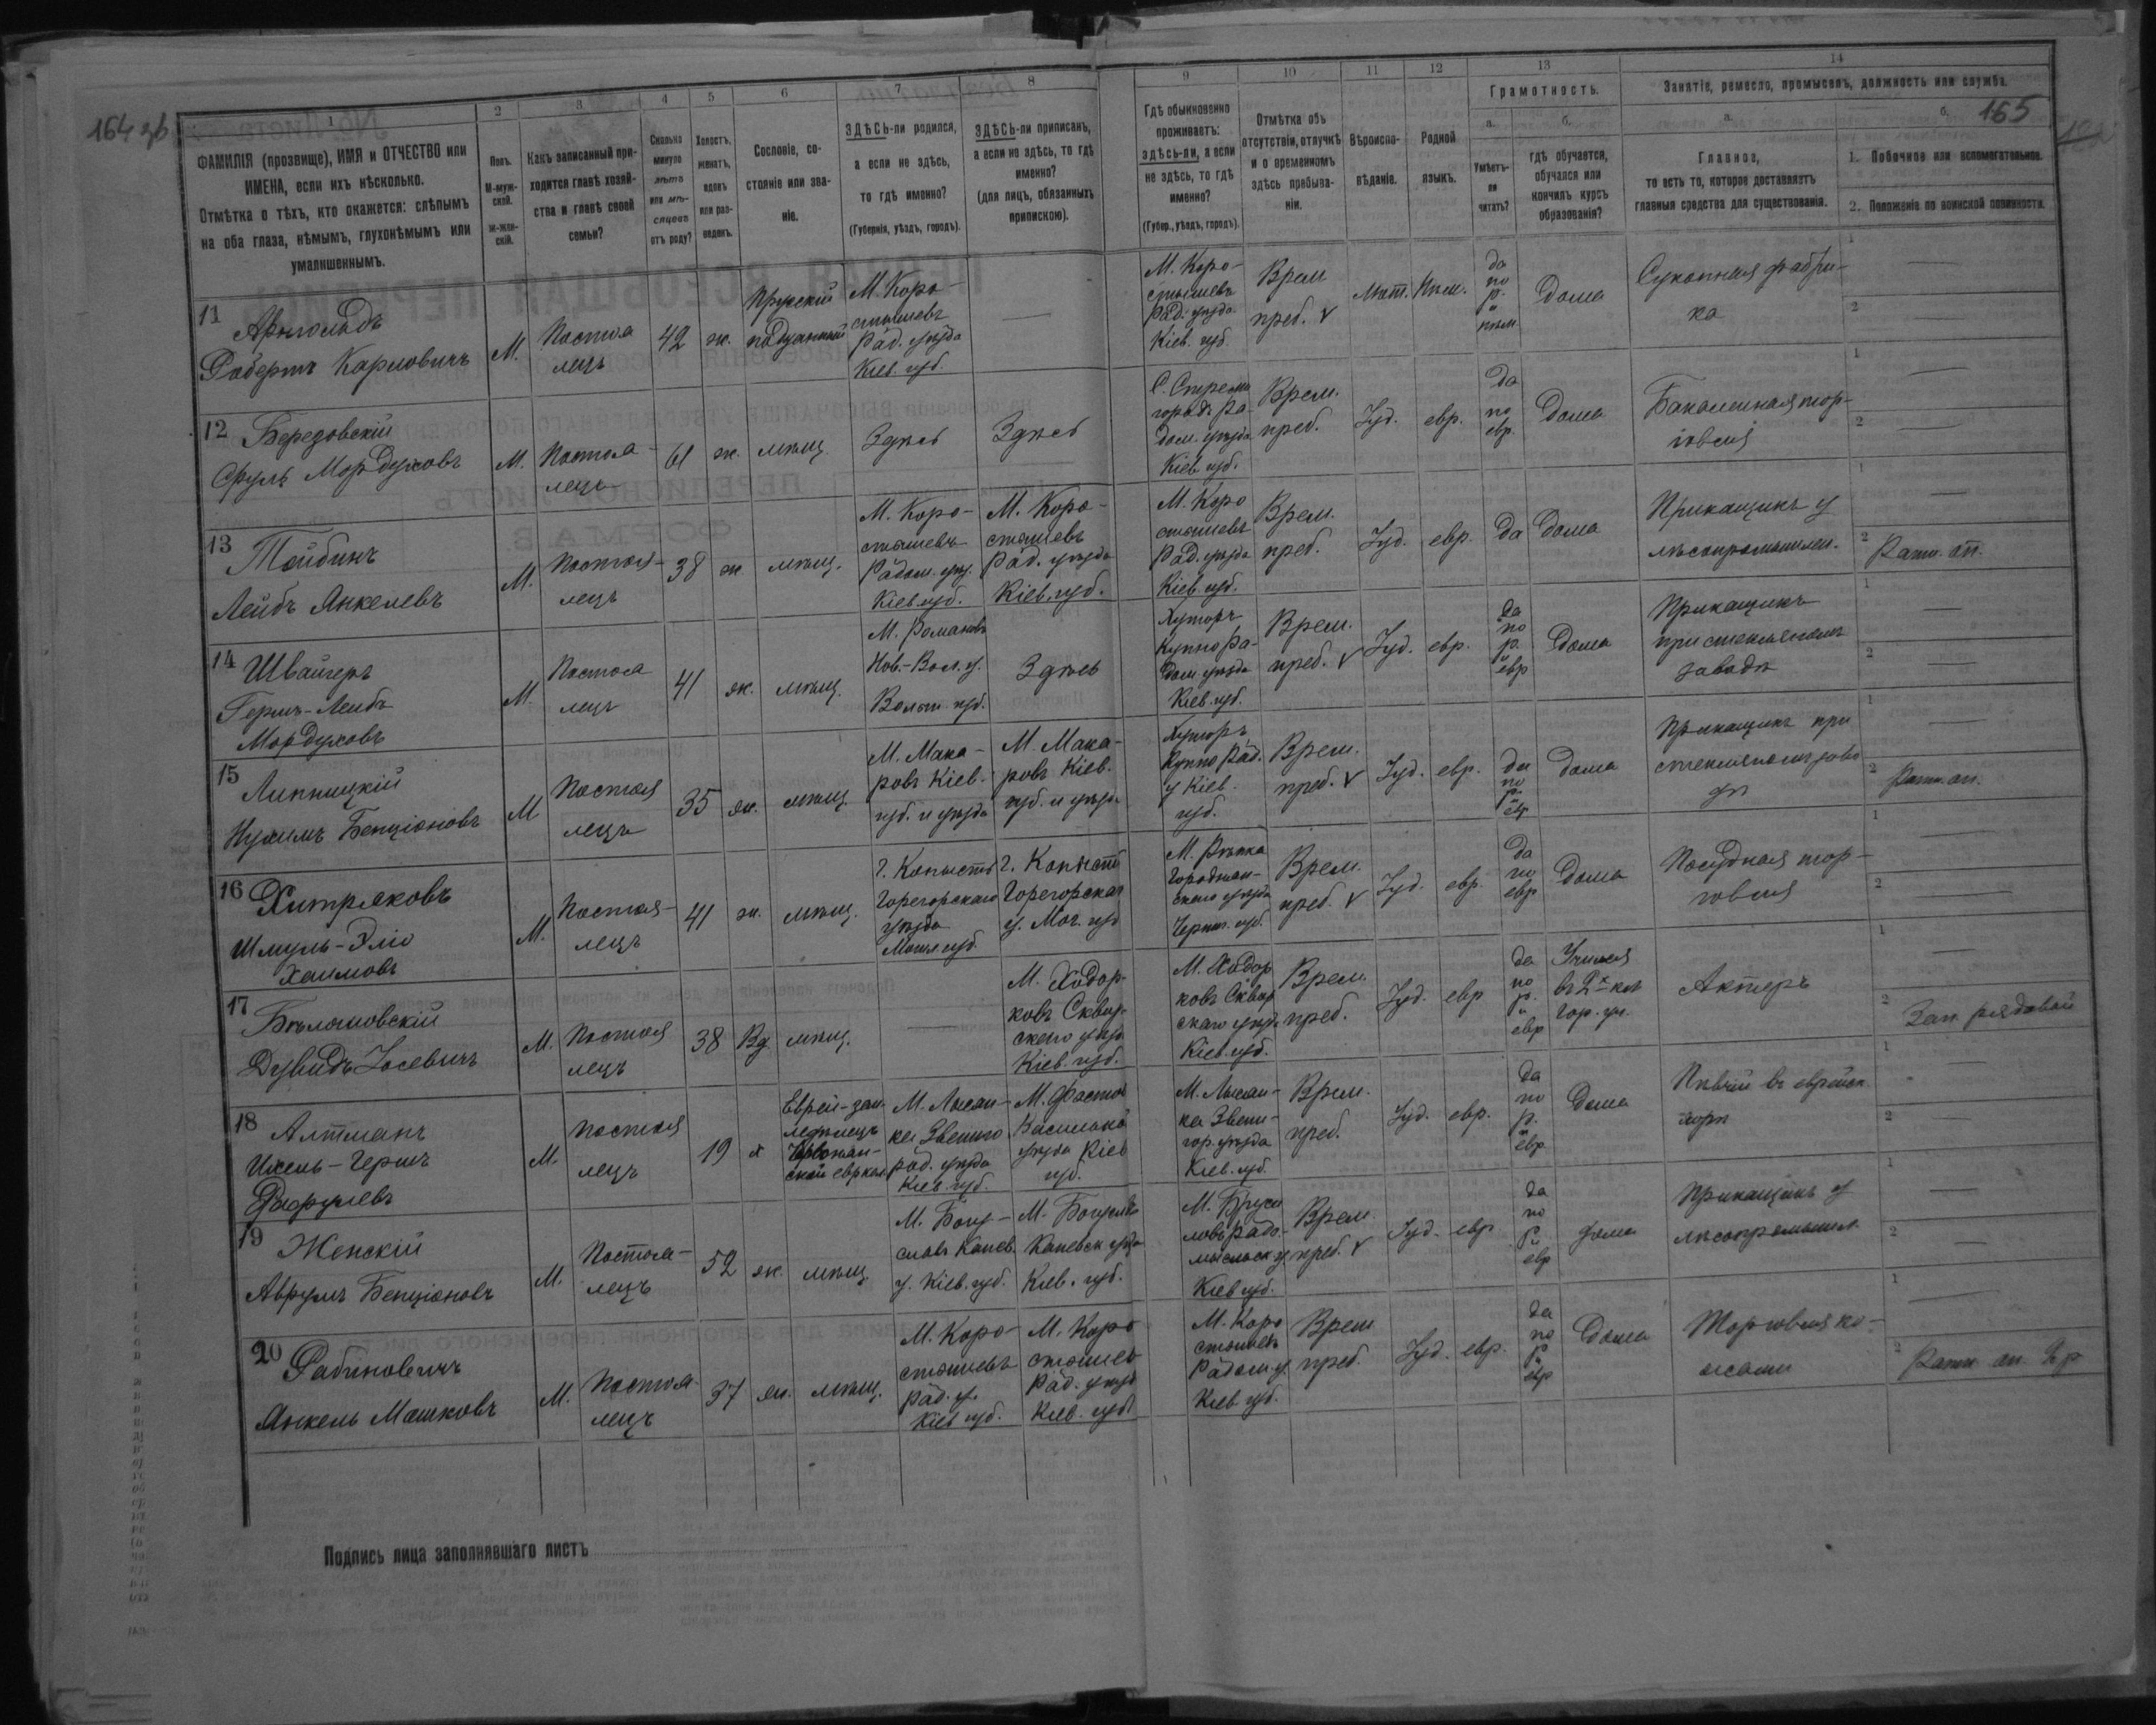 164 зв
165
1
ФАМИЛІЯ (прозвище), ИМЯ и ОТЧЕСТВО или
ИМЕНА, если ихъ нѣсколько.
Отмѣтка о тѣхъ, кто окажется: слѣпымъ
на оба глаза, нѣмымъ, глухонѣмымъ или
умалишеннымъ.
2
Полъ.
М-муж-
ской.
Ж-жен-
скій.
3
Какъ записанный при-
ходится главѣ хозяй-
ства и главѣ своей
семьи?
4
Сколько
минуло
лѣтъ
или мѣ-
сяцевъ
отъ роду?
5
Холостъ,
женатъ,
вдовъ
или раз-
веденъ.
6
Сословіе, со-
стояніе или зва-
ніе.
7
ЗДѢСЬ-ли родился,
а если не здѣсь,
то гдѣ именно?
(Губернія, уѣздъ, городъ).
8
ЗДѢСЬ-ли приписанъ,
а если не здѣсь, то гдѣ
именно?
(для лицъ, обязанныхъ
припискою).
9
Гдѣ обыкновенно
проживаетъ:
здѣсь-ли, а если
не здѣсь, то гдѣ
именно?
(Губер., уѣздъ, городъ).
10
Отмѣтка объ
отсутствіи, отлучкѣ
и о временномъ
здѣсь пребыва-
ніи.
11
Вѣроиспо-
вѣданіе.
12
Родной
языкъ.
13
Грамотность.
а.
Умѣетъ-
ли
читать?
б.
гдѣ обучается,
обучался или
кончилъ курсъ
образованія?
14
Занятіе, ремесло, промыселъ, должность или служба.
а.
Главное,
то есть то, которое доставляетъ
главныя средства для существованія.
б.
1. Побочное или вспомогательное.
2. Положеніе по воинской повинности.
11
Арнольдъ
Робертъ Карловичъ
М.
Постоя
лецъ
42
ж.
Прусскій
подданный
М. Коро-
стышевъ
Рад. уѣзда
Кіев. губ.
М. Коро-
стышевъ
Рад. уѣзда
Кіев. губ.
Врем
преб. v
Лют.
Нѣм.
да
по
р.
и
нѣм
Дома
Суконная фабри-
ка
1
2
12
Березовскій
Сруль Мордуховъ
М.
Постоя-
лецъ
61
ж.
мѣщ.
Здѣсь
Здѣсь
дом. уѣзда
Кіев. губ.
Врем.
преб.
Іуд.
евр.
да
по
евр.
Дома
Бакалейная тор-
говля
1
2
13
Тойбинъ
Лейбъ Янкелевъ
М.
Постоя-
лецъ
38
ж.
мѣщ.
М. Коро-
стышевъ
Радом. уѣз.
Кіев. губ.
М. Коро-
стышевъ
Рад. уѣзда
Кіев. губ.
М. Коро
стышевъ
Рад. уѣзда
Кіев. губ.
Врем.
преб.
Іуд.
евр.
да
Дома
Прикащикъ у
лѣсопромышлен.
1
2
Ратн. оп.
14
Швайгеръ
Гершъ-Лейбъ
Мордуховъ
М.
Постоя
лецъ
41
ж.
мѣщ.
М. Романовъ
Нов.-Вол. у.
Волын. губ.
Здѣсь
Хуторъ
дом. уѣзда
Кіев. губ.
Врем.
преб. v
Іуд.
евр.
да
по
р.
и
евр
Дома
Прикащикъ
при стеклянномъ
заводѣ
1
2
15
Липницкій
Нухимъ Бенціоновъ
М
Постоя
лецъ
35
ж.
мѣщ.
М. Мака-
ровъ Кіев.
губ. и уѣзда
М. Мака-
ровъ Кіев.
губ. и уѣзда
Хуторъ
у Кіев.
губ.
Врем.
преб. v
Іуд.
евр.
да
по
р.
и
евр
Дома
Прикащикъ при
1
2
Ратн. оп.
16
Хитряковъ
Шмуль-Эліо
Хаимовъ
М.
Постоя-
лецъ
41
ж.
мѣщ.
г. Копысть
Горегорскаго
уѣзда
Могил губ.
г. Копысть
Горегорскаго
у. Мог. губ
М. Рѣпка
Городнян-
скаго уѣзда
Черниг. губ.
Врем.
преб. v
Іуд.
евр.
да
по
евр
Дома
Посудная тор-
говля
1
2
17
Дувидъ Іосевичъ
М.
Постоя
лецъ
38
Вд
мѣщ.
М. Ходор-
ковъ Сквир-
скаго уѣзд
Кіев. губ.
М. Ходор
ковъ Сквир
скаго уѣзд
Кіев. губ.
Врем.
преб.
Іуд.
евр
да
по
р.
и
евр
Учился
въ 2х кл
гор. уч.
Актеръ
1
2
Зап. рядовой
18
Алтманъ
Ихель-Гершъ
М.
Постоя
лецъ
19
х
Еврей-зем-
ледѣлецъ
М. Лысян-
ка Звениго
род. уѣзда
Кіев. губ.
М. Фастов
уѣзда Кіев
губ.
М. Лысян-
ка Звени-
гор. уѣзда
Кіев. губ.
Врем.
преб.
Іуд.
евр.
да
по
р.
и
евр.
Дома
Пѣвчій въ еврейск.
хорѣ
1
2
19
Женскій
Аврумъ Бенціоновъ
М.
Постоя-
лецъ
52
ж.
мѣщ
М. Богу-
славъ Канев.
у. Кіев. губ.
М. Богуслав
Каневск уѣзд
Кіев. губ.
М. Бруси
ловъ Радо-
мысльск у.
Кіев губ.
Врем.
преб. v
Іуд.
евр.
да
по
р.
и
евр
Дома
Прикащикъ у
лѣсопромышл.
1
2
20
Рабиновичъ
Янкель Мошковъ
М.
Постоя-
лецъ
37
ж.
мѣщ.
М. Коро-
стышевъ
Рад. у.
Кіев губ.
М. Коро
стышев
Рад. уѣзд
Кіев. губ
М. Коро
стышевъ
Радом у.
Кіев губ.
Врем
преб.
Іуд.
евр.
да
по
р
и
евр
Дома
Торговля ко-
жами
1
2
Ратн. оп. 2 р
Подпись лица заполнявшаго листъ